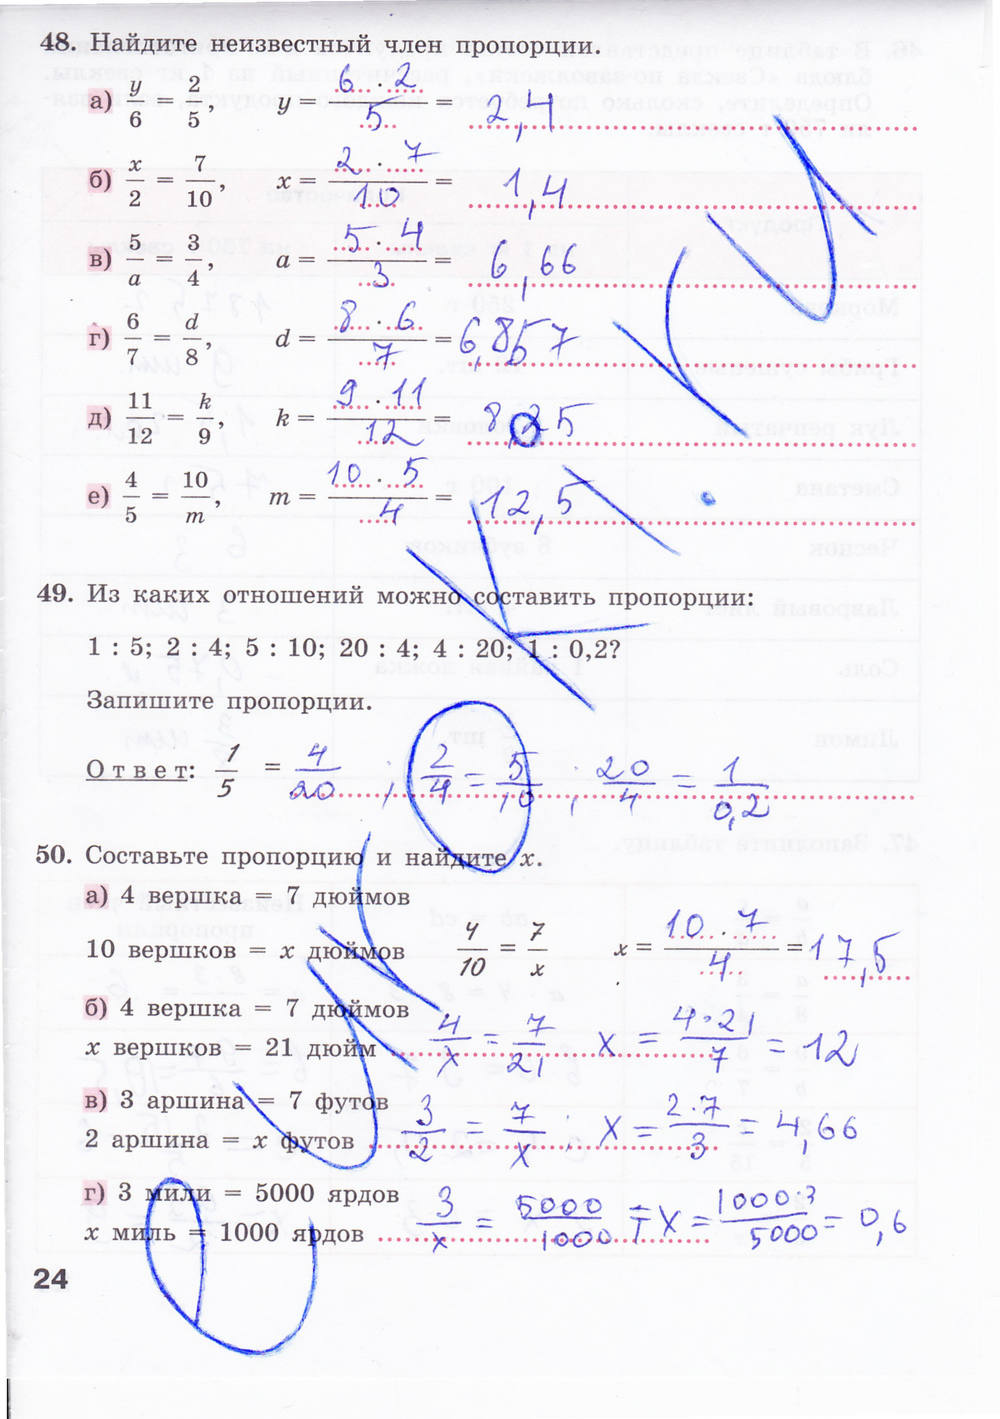 48. Найдите неизвестный член пропорции.
а) y/6 = 2/5, y = 6 · 2/5 = 2,4
б) x/2 = 7/10, x = 2 · 7/10 = 1,4
в) 5/a = 3/4, a = 5 · 4/3 = 6,66
г) 6/7 = d/8, d = 8 · 6/7 = 6,857
д) 11/12 = k/9, k = 9 · 11/12 = 8,25
е) 4/5 = 10/m, m = 10 · 5/4 = 12,5
49. Из каких отношений можно составить пропорции:
1 : 5; 2 : 4; 5 : 10; 20 : 4; 4 : 20; 1 : 0,2?
Запишите пропорции.
Ответ: 1/5 = 4/20; 2/4 = 5/10, 20/4 = 1/0,2
50. Составьте пропорцию и найдите x.
а) 4 вершка = 7 дюймов
10 вершков = x дюймов 4/10 = 7/x x = 10 · 7/4 = 17,5
б) 4 вершка = 7 дюймов
x вершков = 21 дюйм 4/x = 7/21 x = 4·21/7 = 12
в) 3 аршина = 7 футов
2 аршина = x футов 3/2 = 7/x; x = 2·7/3 = 4,66
г) 3 мили = 5000 ярдов
x миль = 1000 ярдов 3/x = 5000/1000 x = 1000·3/5000 = 0,6
24